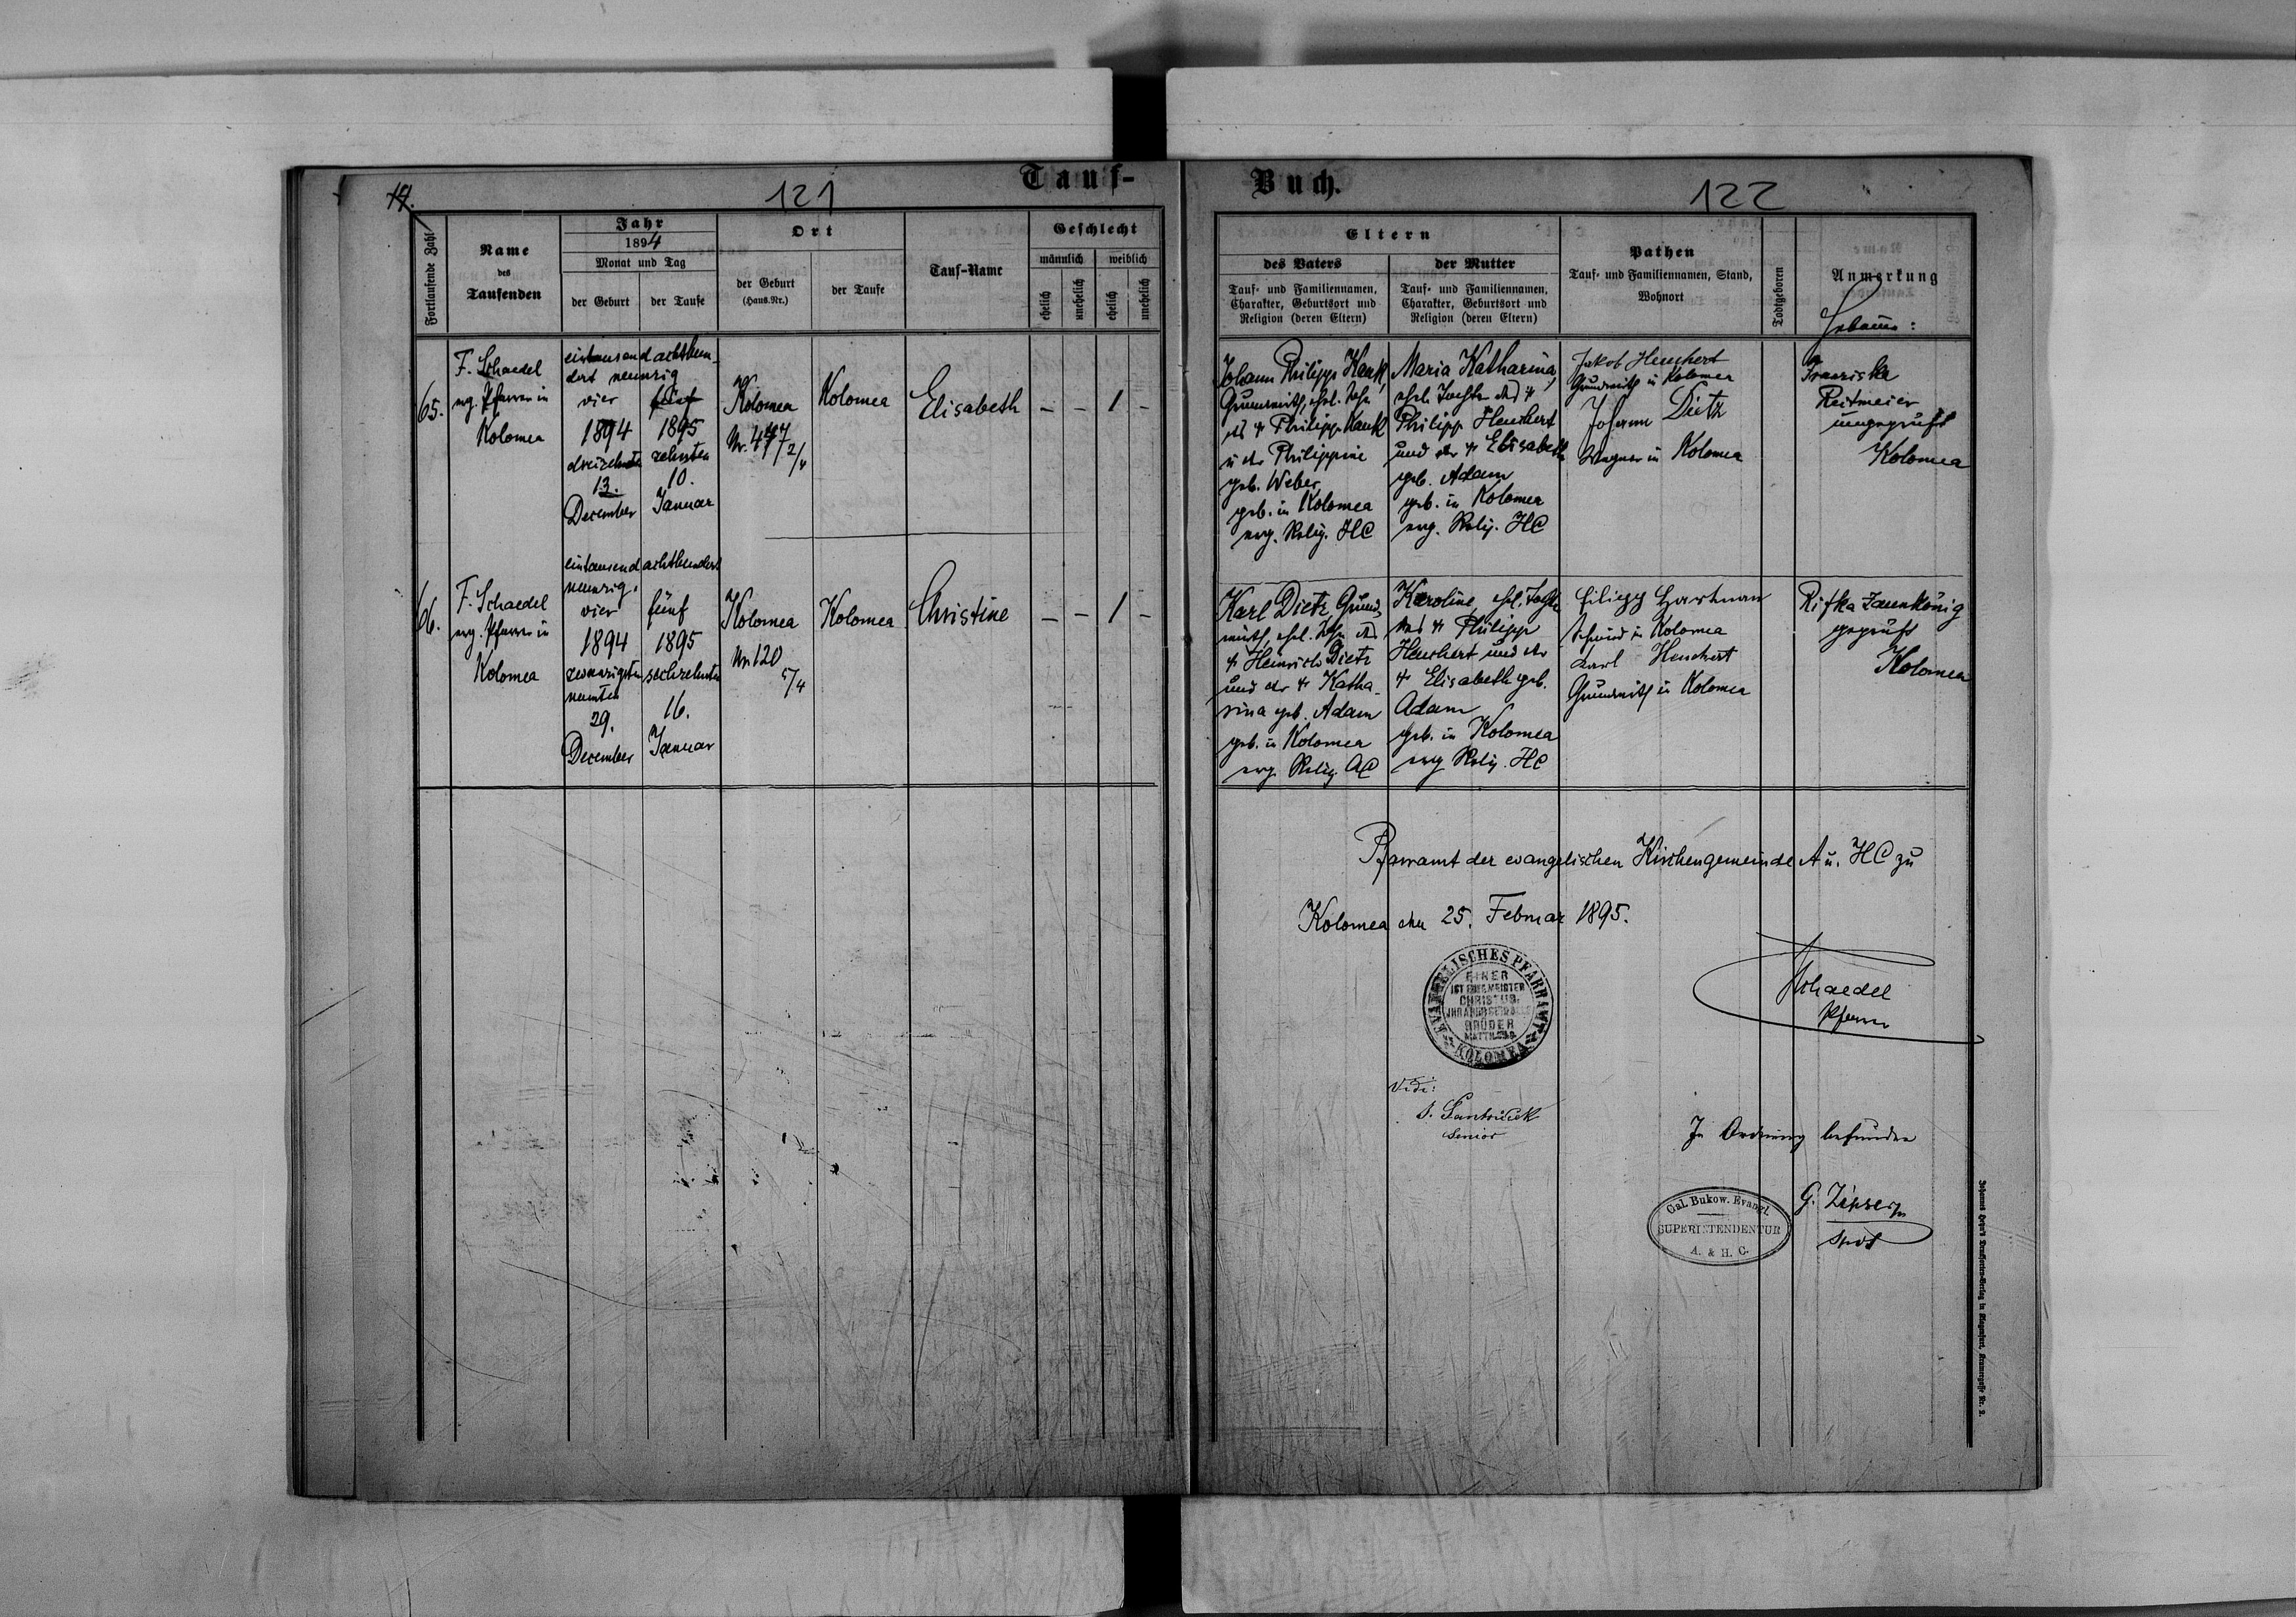 Tauf-
Buch.
121
122
Fortlaufende Zahl
Name
des
Taufenden
Jahr
1894
Monat und Tag
der Geburt
der Taufe
Ort
der Geburt
(Haus-Nr.)
der Taufe
Tauf-Name
Geschlecht
männlich
weiblich
ehelich
unehelich
ehelich
unehelich
Eltern
des Vaters
Tauf- und Familiennamen,
Charakter, Geburtsort und
Religion (deren Eltern)
der Mutter
Tauf- und Familiennamen,
Charakter, Geburtsort und
Religion (deren Eltern)
Pathen
Tauf- und Familiennamen, Stand,
Wohnort
Todtgeboren
Anmerkung
65.
F. Schaedel
evg. Pfarrer in
Kolomea
eintausend achthun-
dert neunzig
vier
1894
dreizehnten
13.
December
fünf
1895
zehnten
10.
Januar
Kolomea
Nr. 477 2/4
Kolomea
Elisabeth
- - 1 -
Johann Philipp Kank,
Grundwirth, ehel. Sohn
des + Philipp Kank
u. der Philippine
geb. Weber
geb. in Kolomea
evg. Relig. HC
Maria Katharina,
ehel. Tochter des +
Philipp Heuchert
und der + Elisabeth
geb. Adam
geb. in Kolomea
evg. Relig. HC
Jakob Heuchert
Grundwirth in Kolomea
Johann Dietz
Wagner in Kolomea
Reitmeier
ungeprüft
Kolomea
66.
F. Schaedel
evg. Pfarrer in
Kolomea
eintausend achthundert
neunzig
vier
1894
zwanzigsten
neunten
29.
December
fünf
1895
sechzehnten
16.
Januar
Kolomea
Nr 120
5/4
Kolomea
Christine
- - 1 -
Karl Dietz, Grund-
wirth, ehel. Sohn des
+ Heinrich Dietz
und der + Katha-
rina geb. Adam
geb. in Kolomea
evg. Relig. AC
Karoline, ehel. Tochter
des + Philipp
Heuchert und der
+ Elisabeth geb.
Adam
geb. in Kolomea
evg Relig. HC
Filipp Hartman
Schmied in Kolomea
Karl Heuchert
Grundwirth in Kolomea
Rifka Zaunkönig
geprüft
Kolomea
Pfarramt der evangelischen Kirchengemeinde A u. HC zu
Kolomea den 25. Februar 1895.
EVANGELISCHES PFARRAMT
EINER
IST EUER MEISTER
CHRISTUS,
IHR ABER SEID ALLE
BRÜDER
KOLOMEA
Schaedel
Pfarrer
Vidi:
Senior
In Ordnung befunden
Gal. Bukow. Evangl.
SUPERINTENDENTUR
A. & H. C.
G. Zipser
Spdt